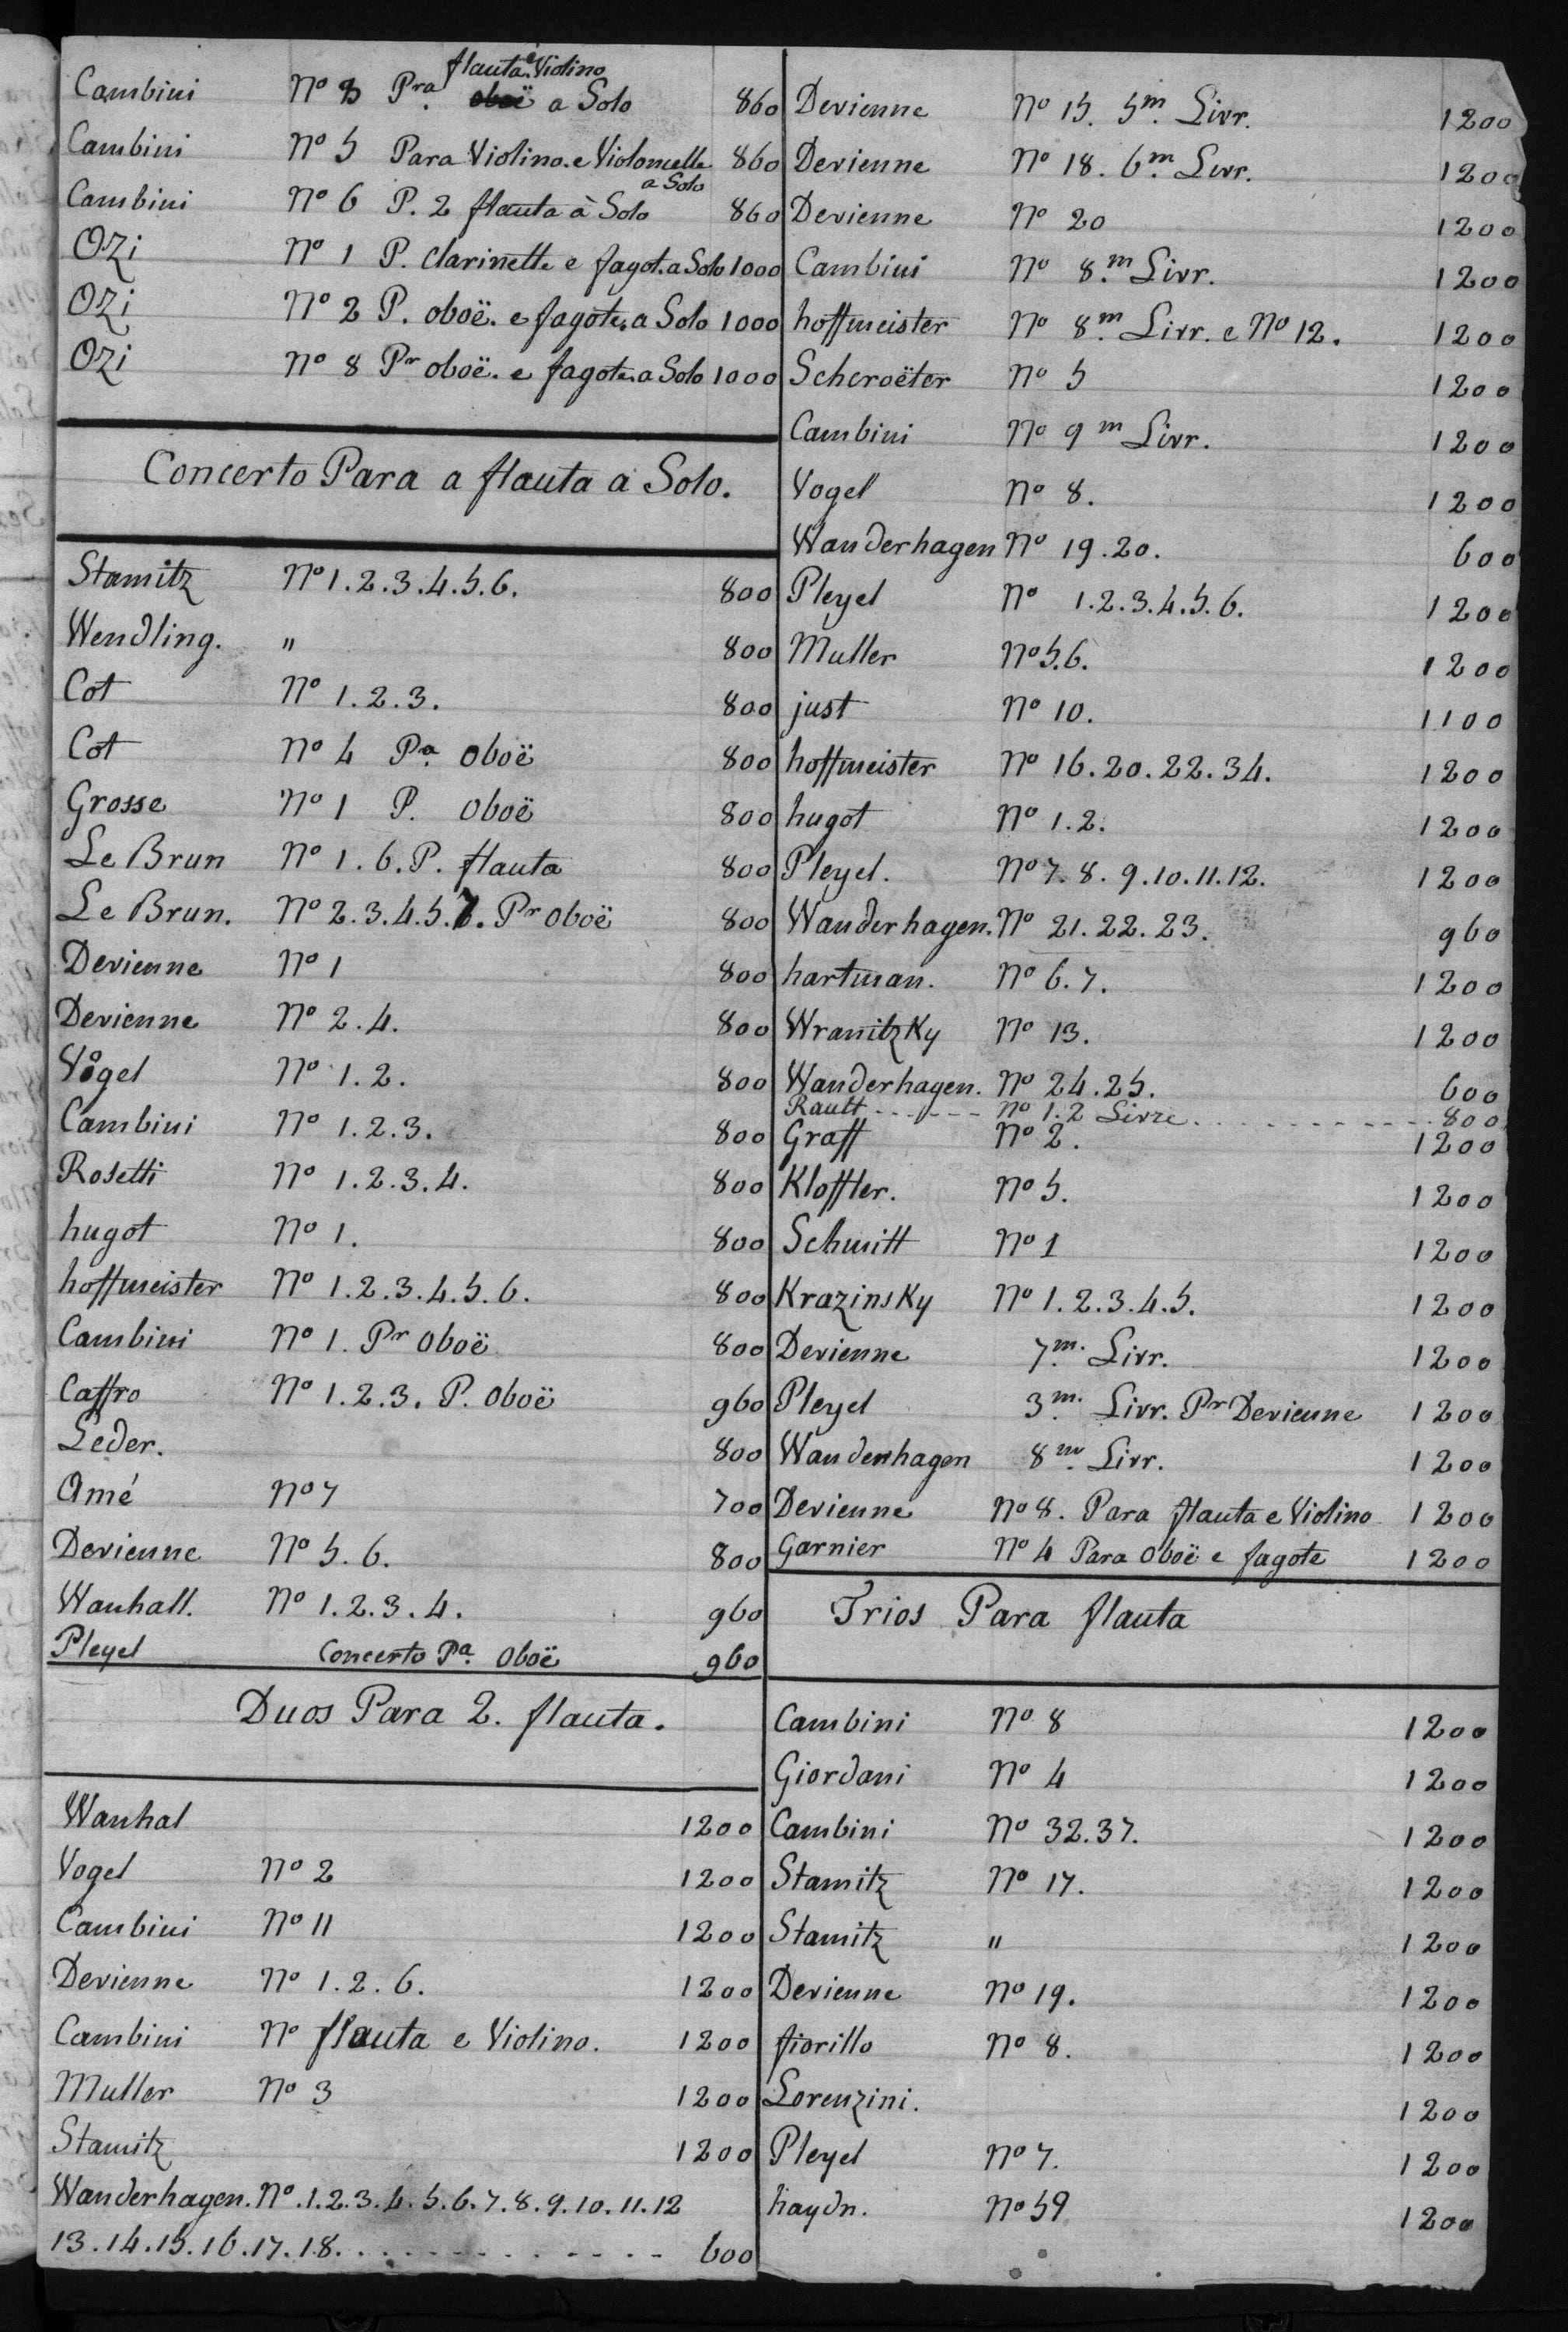 flauta e Violino
Cambini No 3 Pra. oboë a Solo 860
Cambini No 5 Para Violino. e Violoncelle 860
a Solo
Cambini No 6 P. 2 flauta à Solo 860
Ozi No 1 P. Clarinette e fagot. a Solo 1000
Ozi No 2 P. oboë. e fagote. a Solo 1000
Ozi No 8 Pr oboë. e fagote. a Solo 1000
Concerto Para a flauta a Solo.
Stamitz No 1.2.3.4.5.6. 800
Wendling. " 800
Cot No 1.2.3. 800
Cot No 4 Pa. Oboë 800
Grosse No 1 P. Oboë 800
Le Brun No 1.6. P. flauta 800
Le Brun. No 2.3.4.5.7. Pr Oboë 800
Devienne No 1 800
Devienne No 2.4. 800
Vogel No 1.2. 800
Cambini No 1.2.3. 800
Rosetti No 1.2.3.4. 800
hugot No 1. 800
hoffmeister No 1.2.3.4.5.6. 800
Cambini No 1. Pr Oboë 800
Caffro No 1.2.3. P. Oboë 960
Leder. 800
Amé No 7 700
Devienne No 5.6. 800
Wanhall. No 1.2.3.4. 960
Pleyel Concerto Pa. Oboë 960
Duos Para 2. flauta.
Wanhal 1200
Vogel No 2 1200
Cambini No 11 1200
Devienne No 1.2.6. 1200
Cambini No flauta e Violino. 1200
Muller No 3 1200
Stamitz 1200
Wanderhagen. No. 1.2.3.4.5.6.7.8.9.10.11.12
13.14.15.16.17.18. . . . . . . . . . . . . . 600
Devienne No 15. 5m. Livr. 1200
Devienne No 18. 6m. Livr. 1200
Devienne No 20 1200
Cambini No 8.m Livr. 1200
hoffmeister No 8.m Livr. e No 12. 1200
Scheroëter No 5 1200
Cambini No 9 m Livr. 1200
Vogel No 8. 1200
Wanderhagen No 19.20. 600
Pleyel No 1.2.3.4.5.6. 1200
Muller No 5.6. 1200
just No 10. 1100
hoffmeister No 16.20.22.34. 1200
hugot No 1.2. 1200
Pleyel. No 7.8.9.10.11.12. 1200
Wanderhagen. No 21.22.23. 960
hartman. No 6.7. 1200
Wranitzky No 13. 1200
Wanderhagen. No 24.25. 600
Rault - - - - - - no 1.2 Livre. . . . . . . . . . . 800
Graff No 2. 1200
Kloffler. No 5. 1200
Schmitt No 1 1200
Krazinsky No 1.2.3.4.5. 1200
Devienne 7m. Livr. 1200
Pleyel 3m. Livr. Pr Devienne 1200
Wanderhagen 8m. Livr. 1200
Devienne No 8. Para flauta e Violino 1200
Garnier No 4 Para Oboë e fagote 1200
Trios Para flauta
Cambini No 8 1200
Giordani No 4 1200
Cambini No 32.37. 1200
Stamitz No 17. 1200
Stamitz " 1200
Devienne No 19. 1200
fiorillo No 8. 1200
Lorenzini. 1200
Pleyel No 7. 1200
haydn. No 59 1200